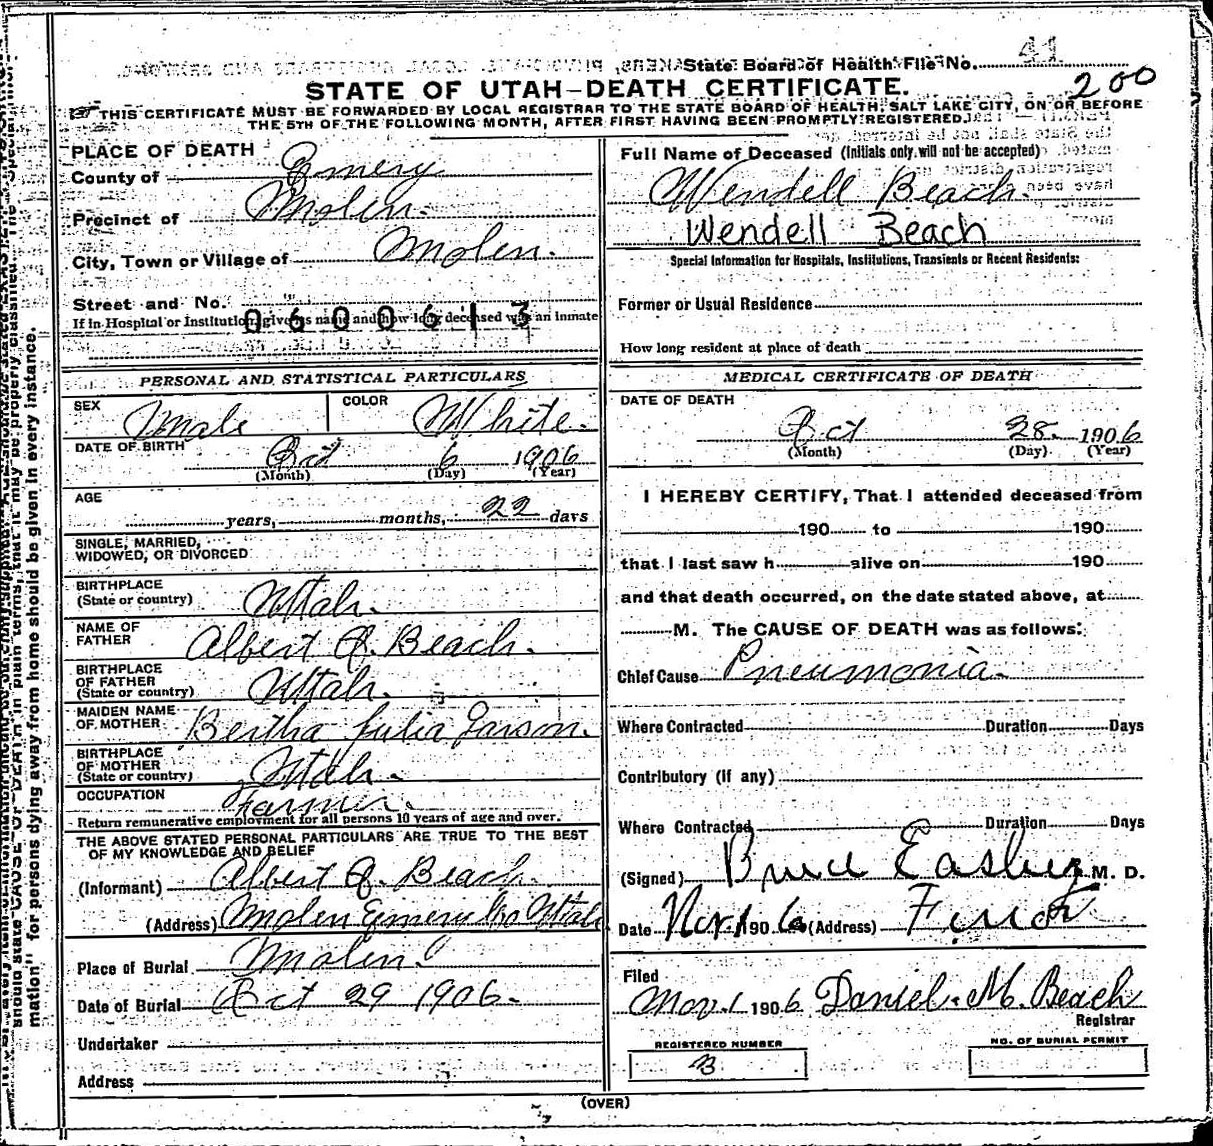 State Board of Health File No. 41
200
STATE OF UTAH—DEATH CERTIFICATE.
THIS CERTIFICATE MUST BE FORWARDED BY LOCAL REGISTRAR TO THE STATE BOARD OF HEALTH, SALT LAKE CITY, ON OR BEFORE
THE 5TH OF THE FOLLOWING MONTH, AFTER FIRST HAVING BEEN PROMPTLY REGISTERED.
PLACE OF DEATH
County of Emery
Precinct of Molen.
City, Town or Village of Molen.
Street and No.
If in Hospital or Institution, give its name and how long deceased was an inmate
0600613
Full Name of Deceased (Initials only will not be accepted)
Wendell Beach.
Wendell Beach
Special Information for Hospitals, Institutions, Transients or Recent Residents:
Former or Usual Residence
How long resident at place of death
PERSONAL AND STATISTICAL PARTICULARS
SEX Male COLOR White.
DATE OF BIRTH Oct 6 1906
(Month) (Day) (Year)
AGE
years, months, 22 days
SINGLE, MARRIED,
WIDOWED, OR DIVORCED
BIRTHPLACE
(State or country) Utah.
NAME OF
FATHER Albert Q. Beach.
BIRTHPLACE
OF FATHER
(State or country) Utah.
MAIDEN NAME
OF MOTHER Bertha Julia
BIRTHPLACE
OF MOTHER
(State or country) Utah.
OCCUPATION Farmer.
Return remunerative employment for all persons 10 years of age and over.
THE ABOVE STATED PERSONAL PARTICULARS ARE TRUE TO THE BEST
OF MY KNOWLEDGE AND BELIEF
(Informant) Albert Q. Beach.
(Address) Molen Emery Co Utah
Place of Burial Molen.
Date of Burial Oct 29 1906.
Undertaker
Address
MEDICAL CERTIFICATE OF DEATH
DATE OF DEATH
Oct 28. 1906
(Month) (Day) (Year)
I HEREBY CERTIFY, That I attended deceased from
190 to 190
that I last saw h alive on 190
and that death occurred, on the date stated above, at
M. The CAUSE OF DEATH was as follows:
Chief Cause Pneumonia.
Where Contracted Duration Days
Contributory (if any)
Where Contracted Duration Days
(Signed) Bruce Easley M. D.
Date Nov 1 1906 (Address)
Filed
Nov. 1 1906 Daniel. M. Beach
Registrar
REGISTERED NUMBER
3
NO. OF BURIAL PERMIT
(OVER)
mation" for persons dying away from home should be given in every instance.